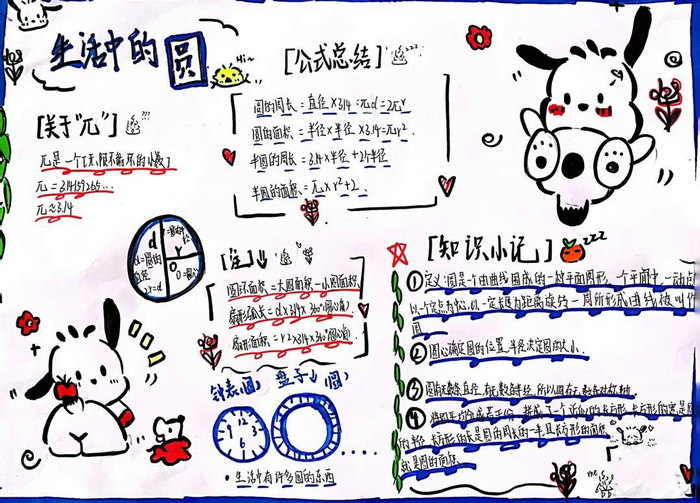 生活中的圆
Hi~
[公式总结]
zzz
圆的周长=直径×3.14=πd=2πr
圆的面积=半径×半径×3.14=πr²
半圆的周长=3.14×半径+2个半径
半圆的面积=π×r²÷2
[关于"π"]
π是一个无限不循环的小数
π=3.14159265...
π≈3.14
d
r
O=圆心
2r=d
[注]
圆环面积=大圆面积-小圆面积
扇形弧长=d×3.14×360°(圆心角)
扇形面积=r2×3.14×360°(圆心角)
钟表(圆) 盘子↓(圆)
12
3
6
9
·生活中有许多圆的东西
[知识小记]
zzz
①定义:圆是个由曲线围成的一种平面图形,一个平面中,一动点
以一个定点为中心,以一定长度为距离旋的一周所形成曲线被叫作
圆
②圆心确定圆的位置,半径决定圆的大小.
③圆有无数条直径,有无数条半径,所以圆有无数条对称轴.
④将圆平均分成若干份,拼成了一个近似的长方形,长方形的宽是圆
的半径,长方形的长是圆的周长的一半且长方形的面积
就是圆的面积
me